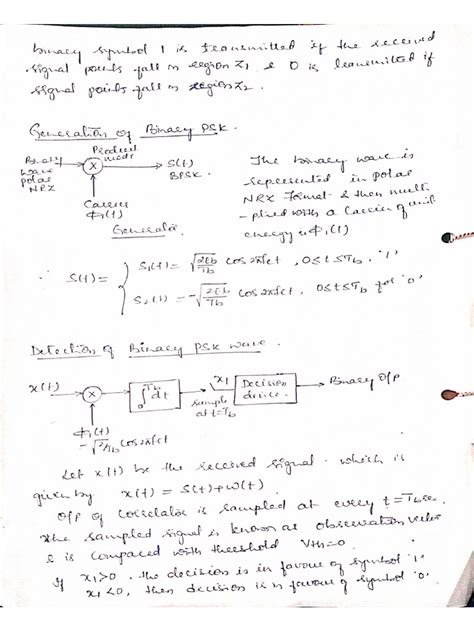 binary symbol 1 is transmitted if the received
signal points fall in region Z1 & 0 is transmitted if
signal points fall in region Z2.
Generation of Binary PSK.
Binary wave polar NRZ
Product modr
X
S(t) BPSK
Carrier
Φ1(t)
Generator
The binary wave is
represented in polar
NRZ Format & then multi
-plied with a Carrier of unit
energy is Φ1(t)
∴ S(t) = { S1(t) = √(2Eb/Tb) cos 2πfct , 0≤t≤Tb , '1'
S2(t) = -√(2Eb/Tb) cos 2πfct , 0≤t≤Tb for '0'
Detection of Binary PSK wave.
x(t)
X
∫0^Tb dt
x1
sample at t=Tb
Decision device
Binary O/p
Φ1(t)
= √2/Tb cos 2πfct
Let x(t) be the received signal which is
given by x(t) = S(t) + w(t)
O/p of correlator is sampled at every t=Tb sec.
The sampled signal is known as observation vector
& is compared with threshold Vth=0.
If x1>0, the decision is in favour of symbol '1'
x1<0, then decision is in favour of symbol '0'.